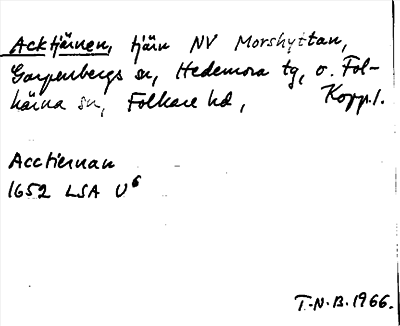 Acktjärnen, tjärn NV Morshyttan,
Garpenbergs sn, Hedemora tg, o. Fol-
kärna sn, Folkare hd, Kopp.l.
Acctiernan
1652 LSA U⁶
T.N.B. 1966.